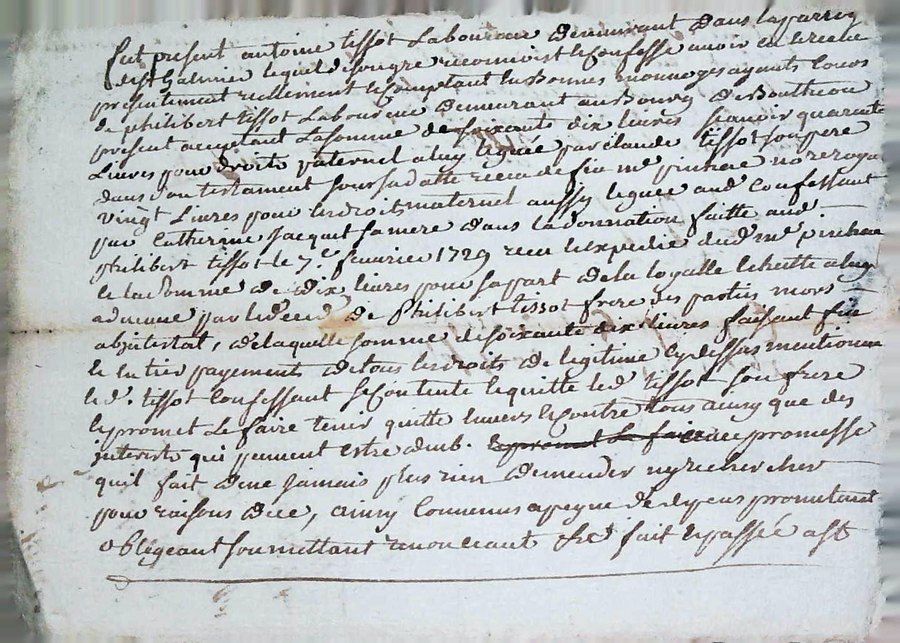 fut present antoine tissot Laboureur demeurant dans la parroi
de st Galmier lequel de son gre reconnoist & confesse avoir eu & receu
presentement reellement & comptant en bonnes monnoyes ayants cours
de philibert tissot Laboureur demeurant au Bourg de Boutheon
present acceptant La somme de soixante dix livres sçavoir quarente
Livres pour droits paternel a luy legué par claude tissot son pere
dans son testament sous sa datte receu de feu me pinhac no.re roya
vingt Livres pour les droits maternel aussy leguée aud confessant
par Catherine jacquet sa mere dans la donnation faitte aud
philibert tissot le 7e fevrier 1729 receu & expedié dud me pinhac
& la somme de dix livres pour sa part de la loyalle & heritte a luy
advenue par le deced de Philibert tissot frere des parties mort
abintestat, de laquelle somme de soixante dix livres faisant fin
& entier payement de tous les droits de legitime cy dessus mentionnée
led. tissot confessant se contente & quitte led tissot son frere
& promet Le faire tenir quitte envers & contre tous ainsy que des
interests qui peuvent estre deub. & promet Le faire avec promesse
quil fait de ne jamais plus rien demender ny rechercher
pour raisons de ce, ainsy convenus a peyne de depens promettant
obligeant soumettant renonceant &c fait & passée a st